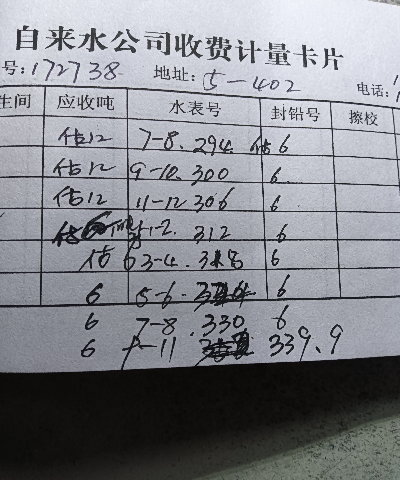 自来水公司收费计量卡片
号:172738 地址:5-402 电话:
生间 应收吨 水表号 封铅号 擦校
估12 7-8. 294 估6
估12 9-10. 300 6
估12 11-12 306 6
估6 1-2. 312 6
估6 3-4. 318 6
6 5-6. 6
6 7-8. 330 6
6 9-11 339.9